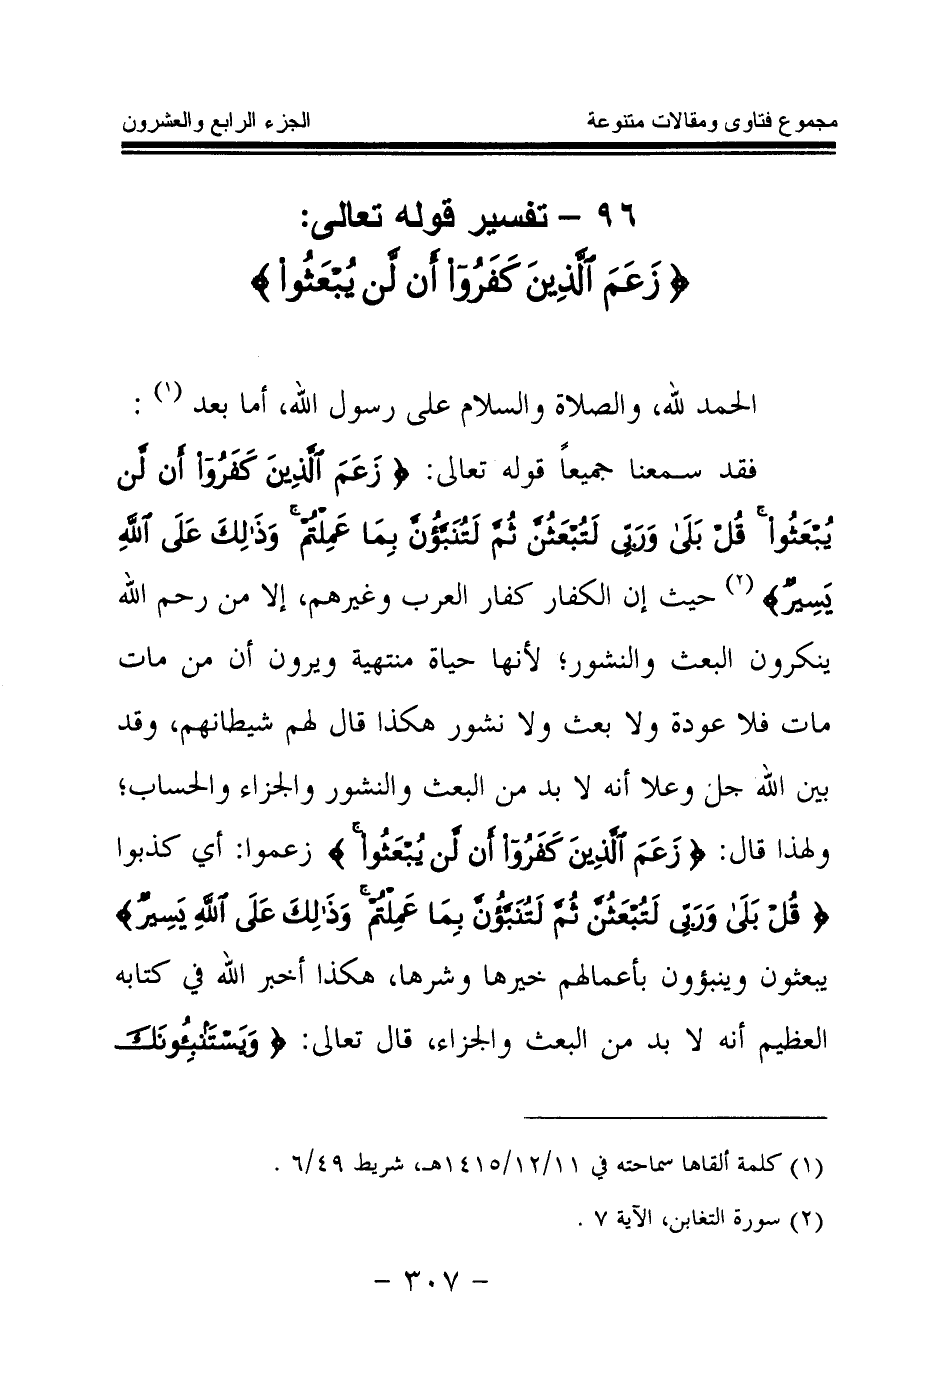 مجموع فتاوى ومقالات متنوعة الجزء الرابع والعشرون
٩٦ – تفسير قوله تعالى:
﴿ زَعَمَ ٱلَّذِينَ كَفَرُوٓا۟ أَن لَّن يُبْعَثُوا۟ ﴾
الحمد لله، والصلاة والسلام على رسول الله، أما بعد (١) :
فقد سمعنا جميعاً قوله تعالى: ﴿ زَعَمَ ٱلَّذِينَ كَفَرُوٓا۟ أَن لَّن
يُبْعَثُوا۟ ۚ قُلْ بَلَىٰ وَرَبِّى لَتُبْعَثُنَّ ثُمَّ لَتُنَبَّؤُنَّ بِمَا عَمِلْتُمْ ۚ وَذَٰلِكَ عَلَى ٱللَّهِ
يَسِيرٌ ﴾ (٢) حيث إن الكفار كفار العرب وغيرهم، إلا من رحم الله
ينكرون البعث والنشور؛ لأنها حياة منتهية ويرون أن من مات
مات فلا عودة ولا بعث ولا نشور هكذا قال لهم شيطانهم، وقد
بين الله جل وعلا أنه لا بد من البعث والنشور والجزاء والحساب؛
ولهذا قال: ﴿ زَعَمَ ٱلَّذِينَ كَفَرُوٓا۟ أَن لَّن يُبْعَثُوا۟ ۚ ﴾ زعموا: أي كذبوا
﴿ قُلْ بَلَىٰ وَرَبِّى لَتُبْعَثُنَّ ثُمَّ لَتُنَبَّؤُنَّ بِمَا عَمِلْتُمْ ۚ وَذَٰلِكَ عَلَى ٱللَّهِ يَسِيرٌ ﴾
يبعثون وينبؤون بأعمالهم خيرها وشرها، هكذا أخبر الله في كتابه
العظيم أنه لا بد من البعث والجزاء، قال تعالى: ﴿ وَيَسْتَنۢبِـُٔونَكَ
(١) كلمة ألقاها سماحته في ١٤١٥/١٢/١١هـ، شريط ٦/٤٩ .
(٢) سورة التغابن، الآية ٧ .
– ٣٠٧ –